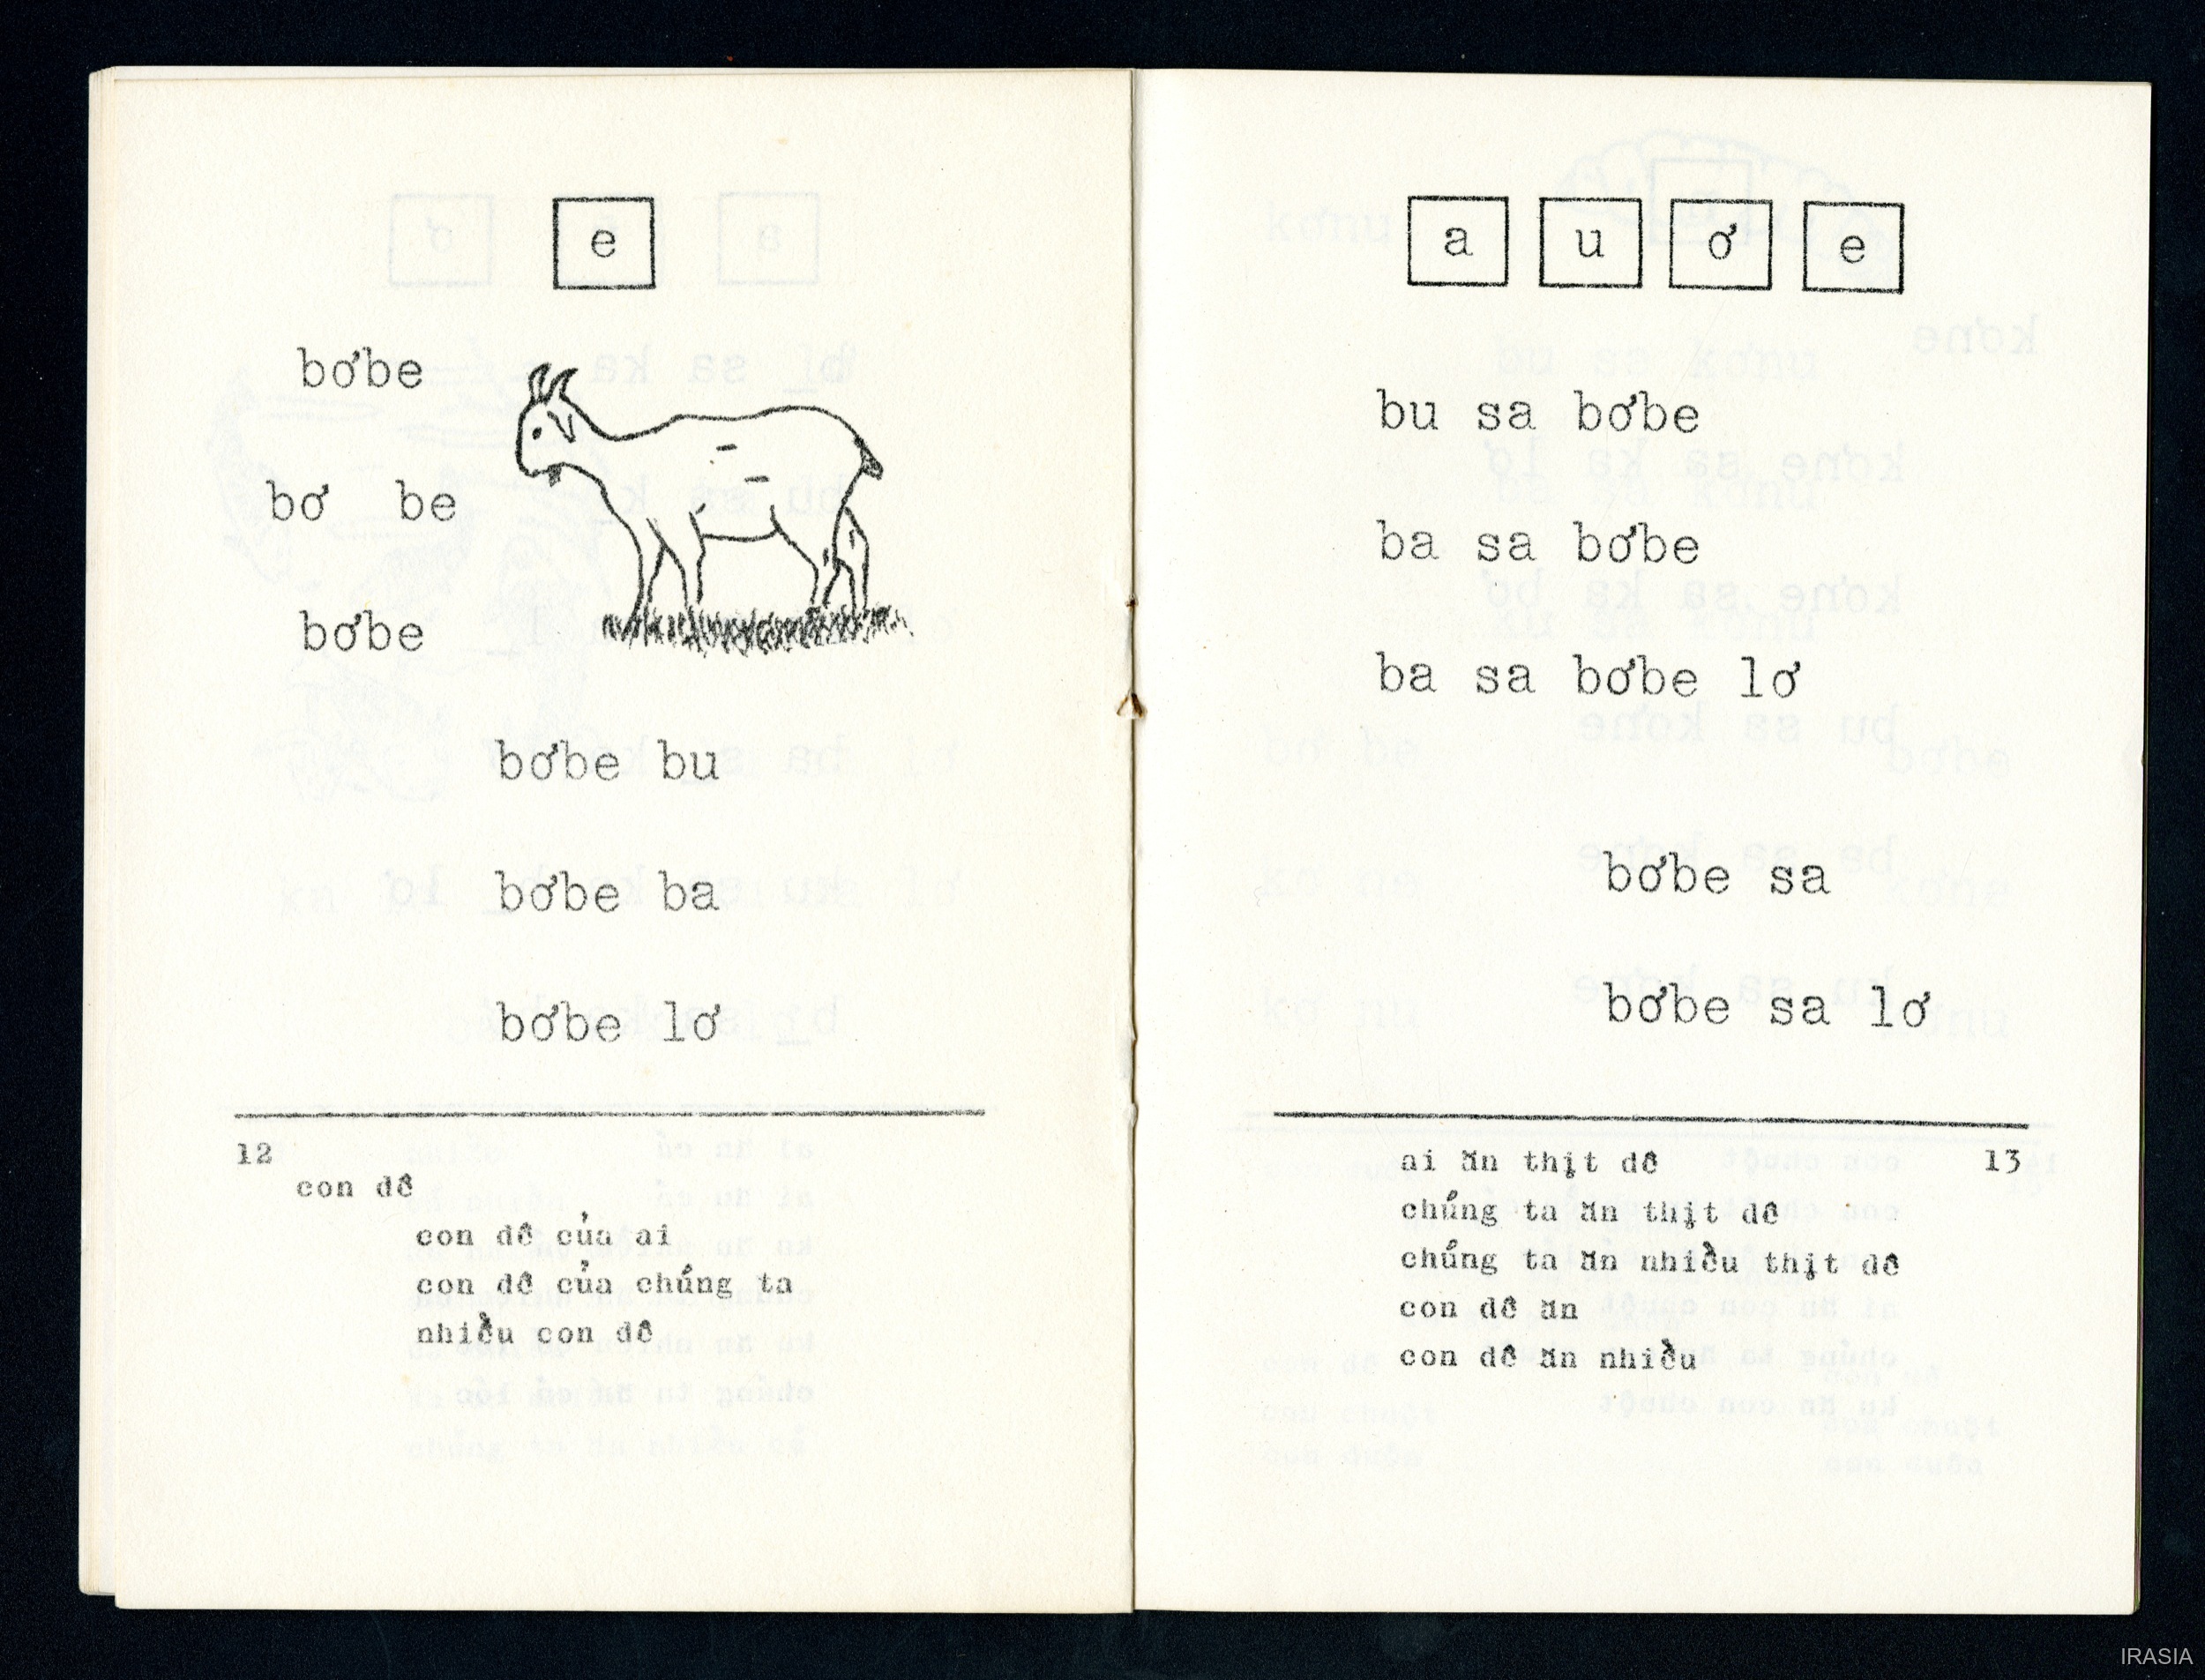 e
bơbe
bơ be
bơbe
bơbe bu
bơbe ba
bơbe lơ
12
con dê
con dê của ai
con dê của chúng ta
nhiều con dê
a u ơ e
bu sa bơbe
ba sa bơbe
ba sa bơbe lơ
bơbe sa
bơbe sa lơ
13
ai ăn thịt dê
chúng ta ăn thịt dê
chúng ta ăn nhiều thịt dê
con dê ăn
con dê ăn nhiều
IRASIA